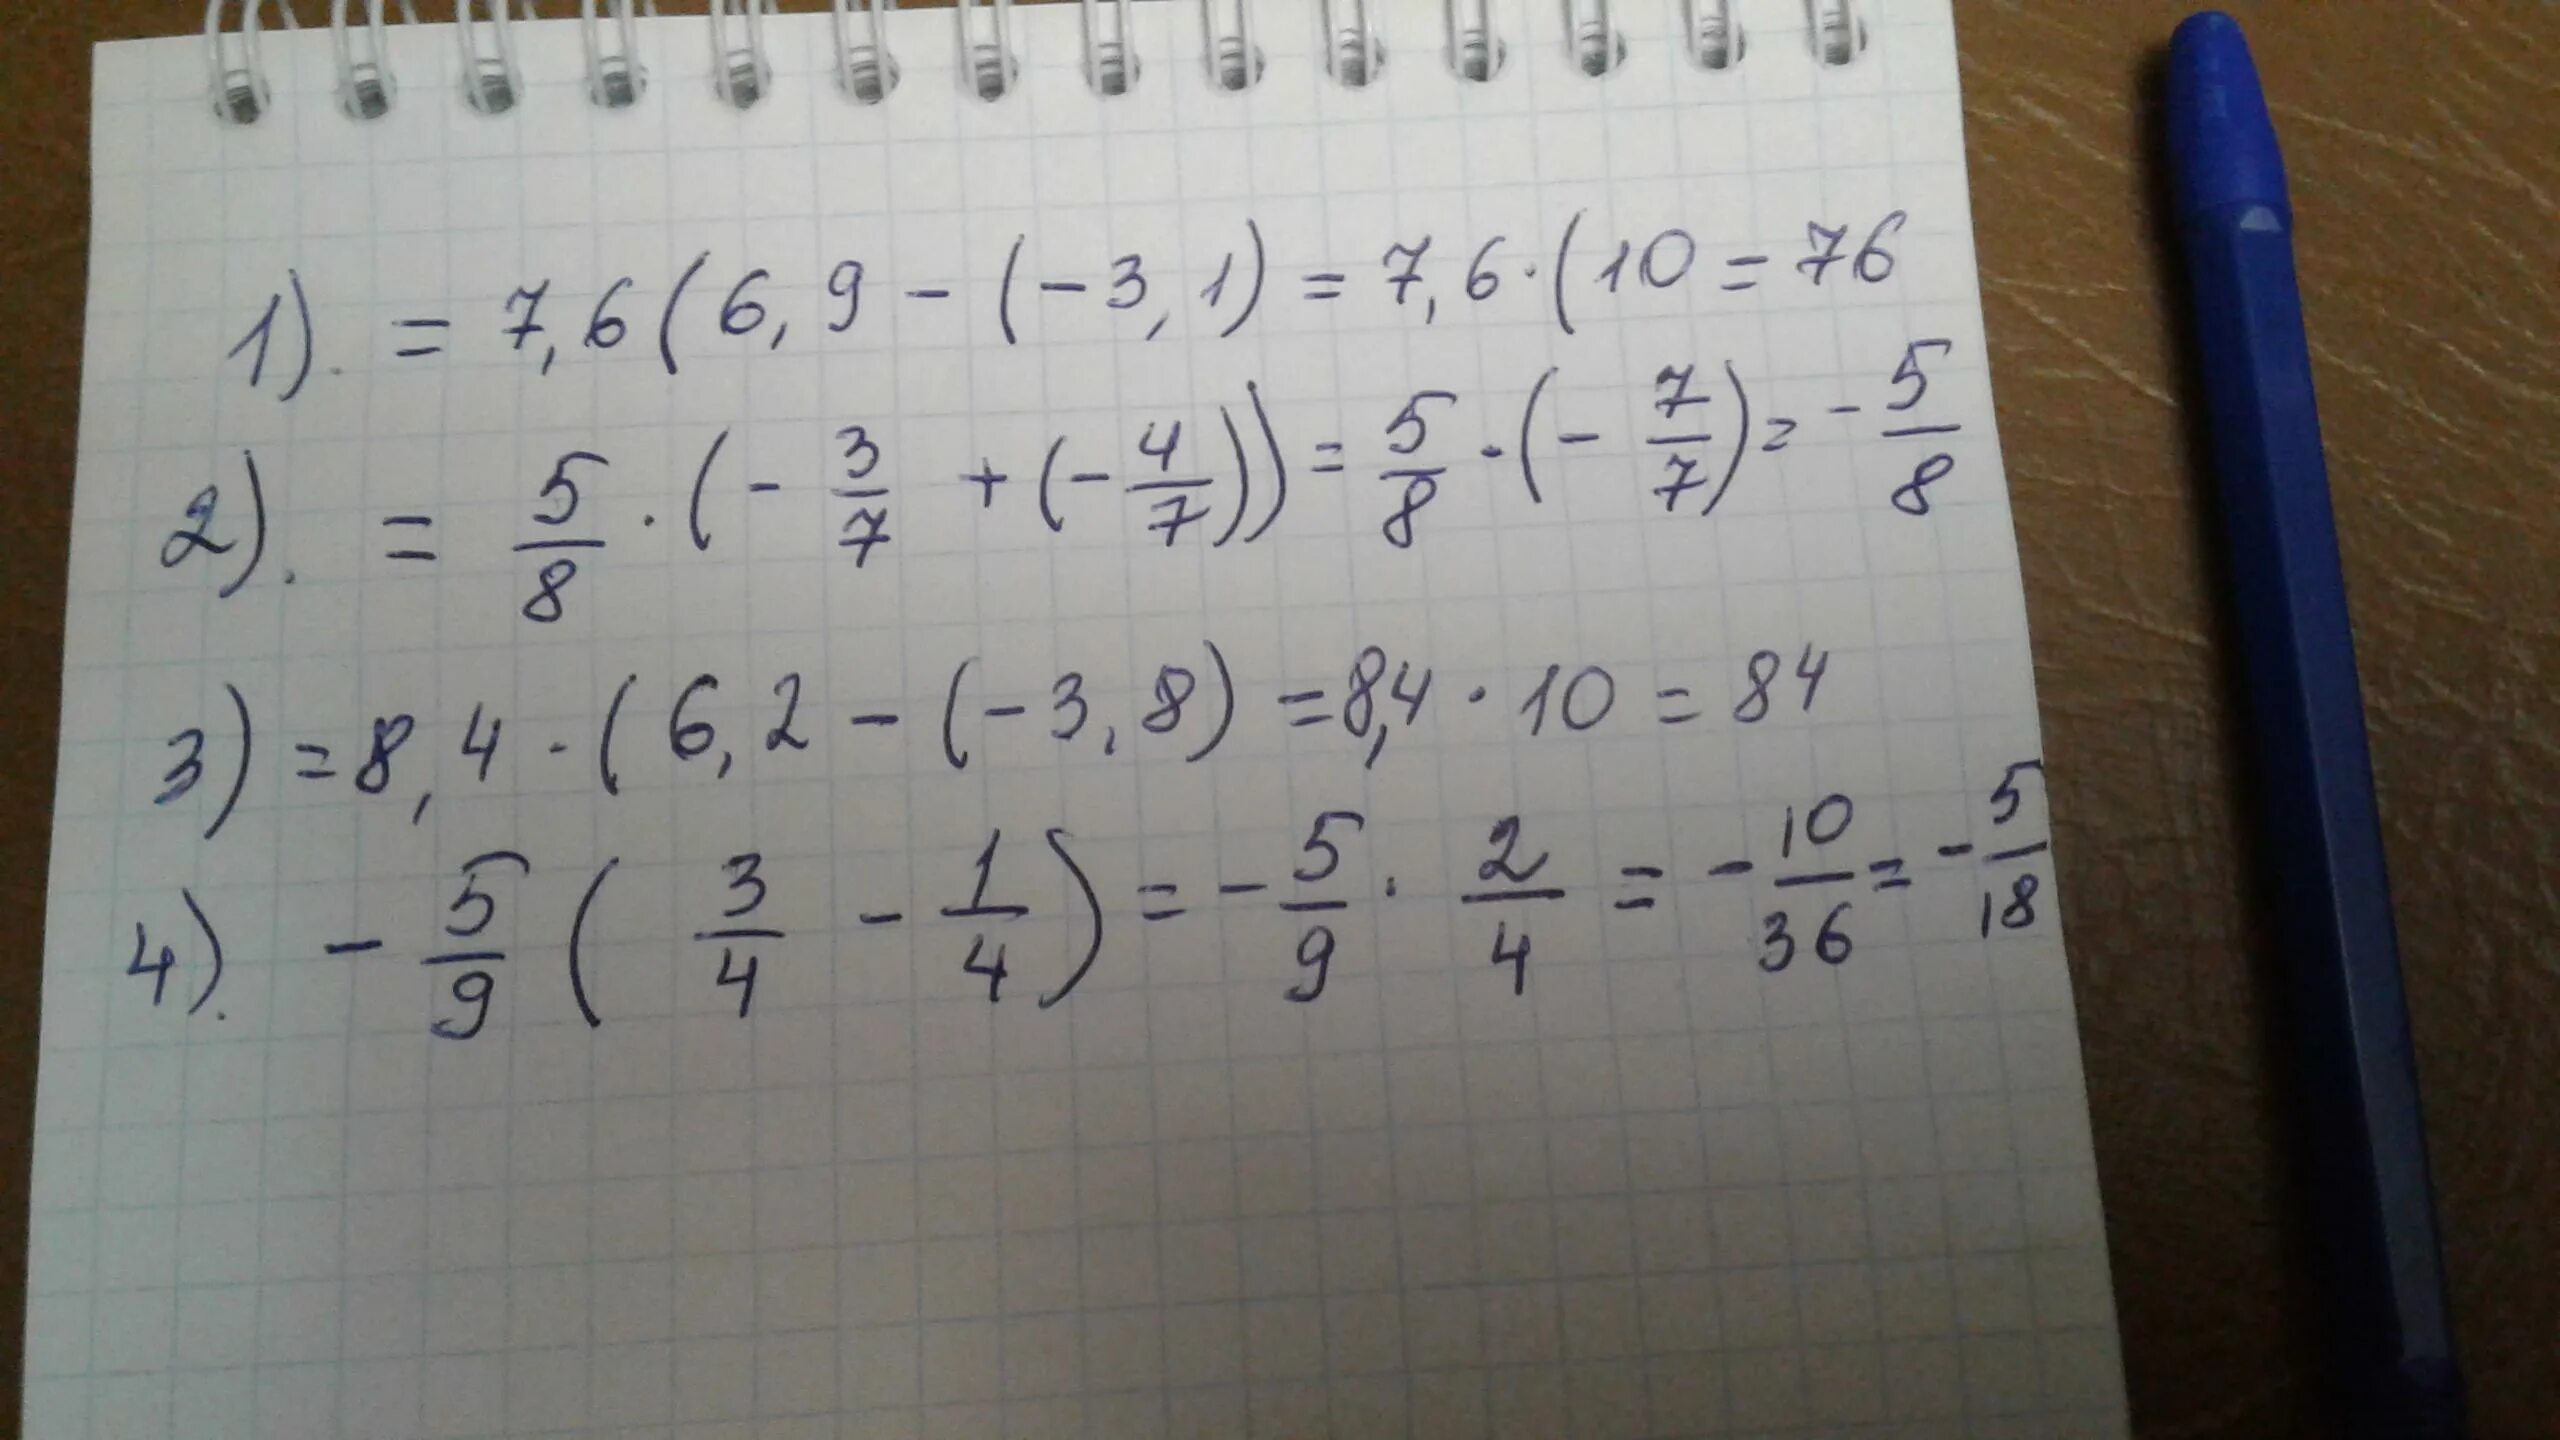 1). = 7,6(6,9 - (-3,1) = 7,6·(10 = 76
2). = 5/8 · (- 3/7 + (- 4/7)) = 5/8 · (- 7/7) = - 5/8
3) = 8,4 · (6,2 - (-3,8) = 8,4 · 10 = 84
4). - 5/9 ( 3/4 - 1/4 ) = - 5/9 · 2/4 = - 10/36 = - 5/18